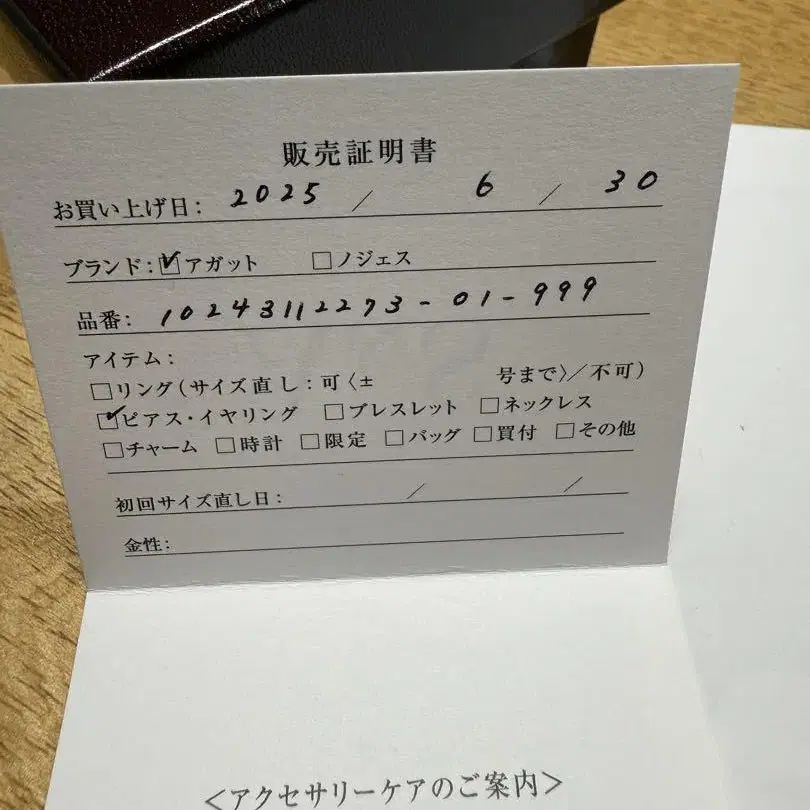 販売証明書
お買い上げ日: 2025 / 6 / 30
ブランド: ☑アガット □ノジェス
品番: 10243112273-01-999
アイテム:
□リング(サイズ直し:可〈± 号まで〉/不可)
☑ピアス・イヤリング □ブレスレット □ネックレス
□チャーム □時計 □限定 □バッグ □買付 □その他
初回サイズ直し日: / /
金性:
<アクセサリーケアのご案内>